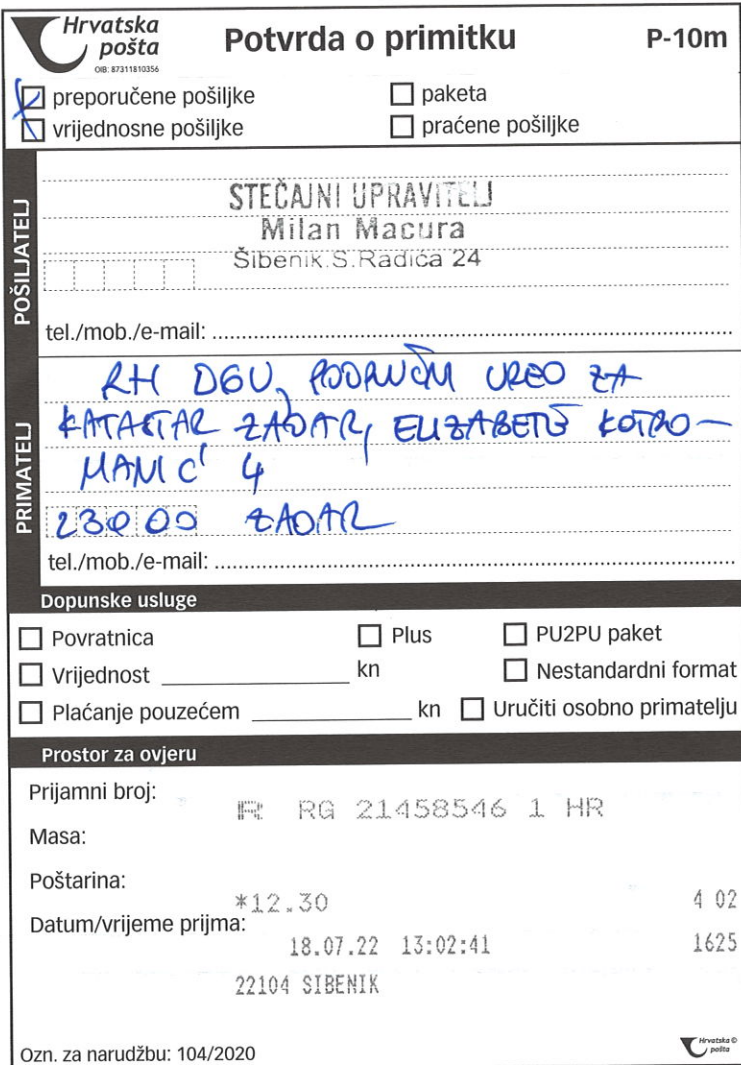 Hrvatska pošta
OIB: 87311810356
Potvrda o primitku
P-10m
preporučene pošiljke
paketa
vrijednosne pošiljke
praćene pošiljke
POŠILJATELJ
STEČAJNI UPRAVITELJ
Milan Macura
Šibenik.S.Radića 24
tel./mob./e-mail:
PRIMATELJ
RH DGU, PODRUČNI URED ZA
KATASTAR ZADAR, ELIZABETE KOTRO-
MANIĆ 4
23000 ZADAR
tel./mob./e-mail:
Dopunske usluge
Povratnica
Plus
PU2PU paket
Vrijednost kn
Nestandardni format
Plaćanje pouzećem kn
Uručiti osobno primatelju
Prostor za ovjeru
Prijamni broj:
R RG 21458546 1 HR
Masa:
Poštarina:
*12.30 4 02
Datum/vrijeme prijma:
18.07.22 13:02:41 1625
22104 SIBENIK
Ozn. za narudžbu: 104/2020
Hrvatska pošta